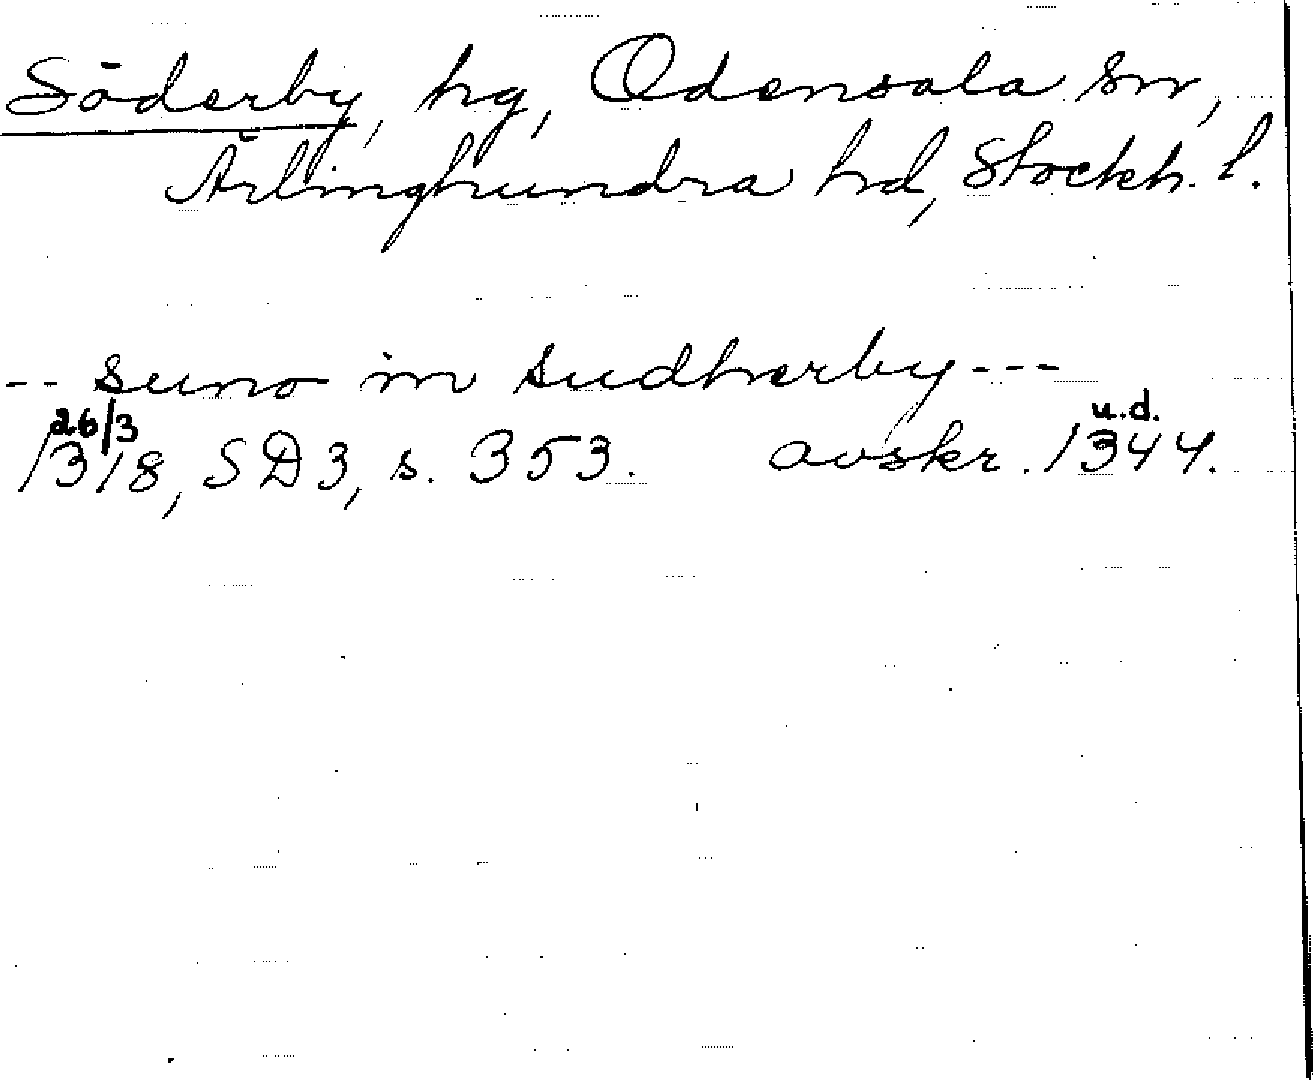 Söderby, hg, Odensala sn,
Ärlinghundra hd, Stockh. l.
-- suno in sudherby ---
26/3 u.d.
1318, SD3, s. 353. avskr. 1344.